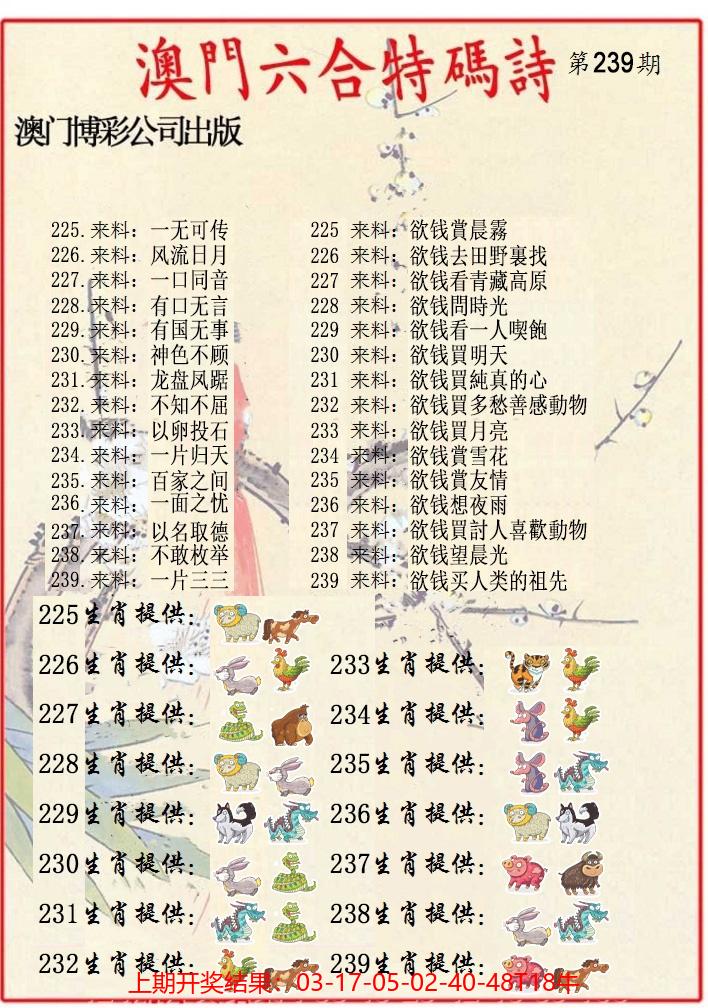 澳門六合特碼詩 第239期
澳门博彩公司出版
225.来料：一无可传 225 来料：欲钱賞晨霧
226.来料：风流日月 226 来料：欲钱去田野裏找
227.来料：一口同音 227 来料：欲钱看青藏高原
228.来料：有口无言 228 来料：欲钱問時光
229.来料：有国无事 229 来料：欲钱看一人喫飽
230.来料：神色不顾 230 来料：欲钱買明天
231.来料：龙盘凤踞 231 来料：欲钱買純真的心
232.来料：不知不屈 232 来料：欲钱買多愁善感動物
233.来料：以卵投石 233 来料：欲钱買月亮
234.来料：一片归天 234 来料：欲钱賞雪花
235.来料：百家之间 235 来料：欲钱賞友情
236.来料：一面之忧 236 来料：欲钱想夜雨
237.来料：以名取德 237 来料：欲钱買討人喜歡動物
238.来料：不敢枚举 238 来料：欲钱望晨光
239.来料：一片三三 239 来料：欲钱买人类的祖先
225生肖提供：
226生肖提供： 233生肖提供：
227生肖提供： 234生肖提供：
228生肖提供： 235生肖提供：
229生肖提供： 236生肖提供：
230生肖提供： 237生肖提供：
231生肖提供： 238生肖提供：
232生肖提供： 239生肖提供：
上期开奖结果：03-17-05-02-40-48T18牛